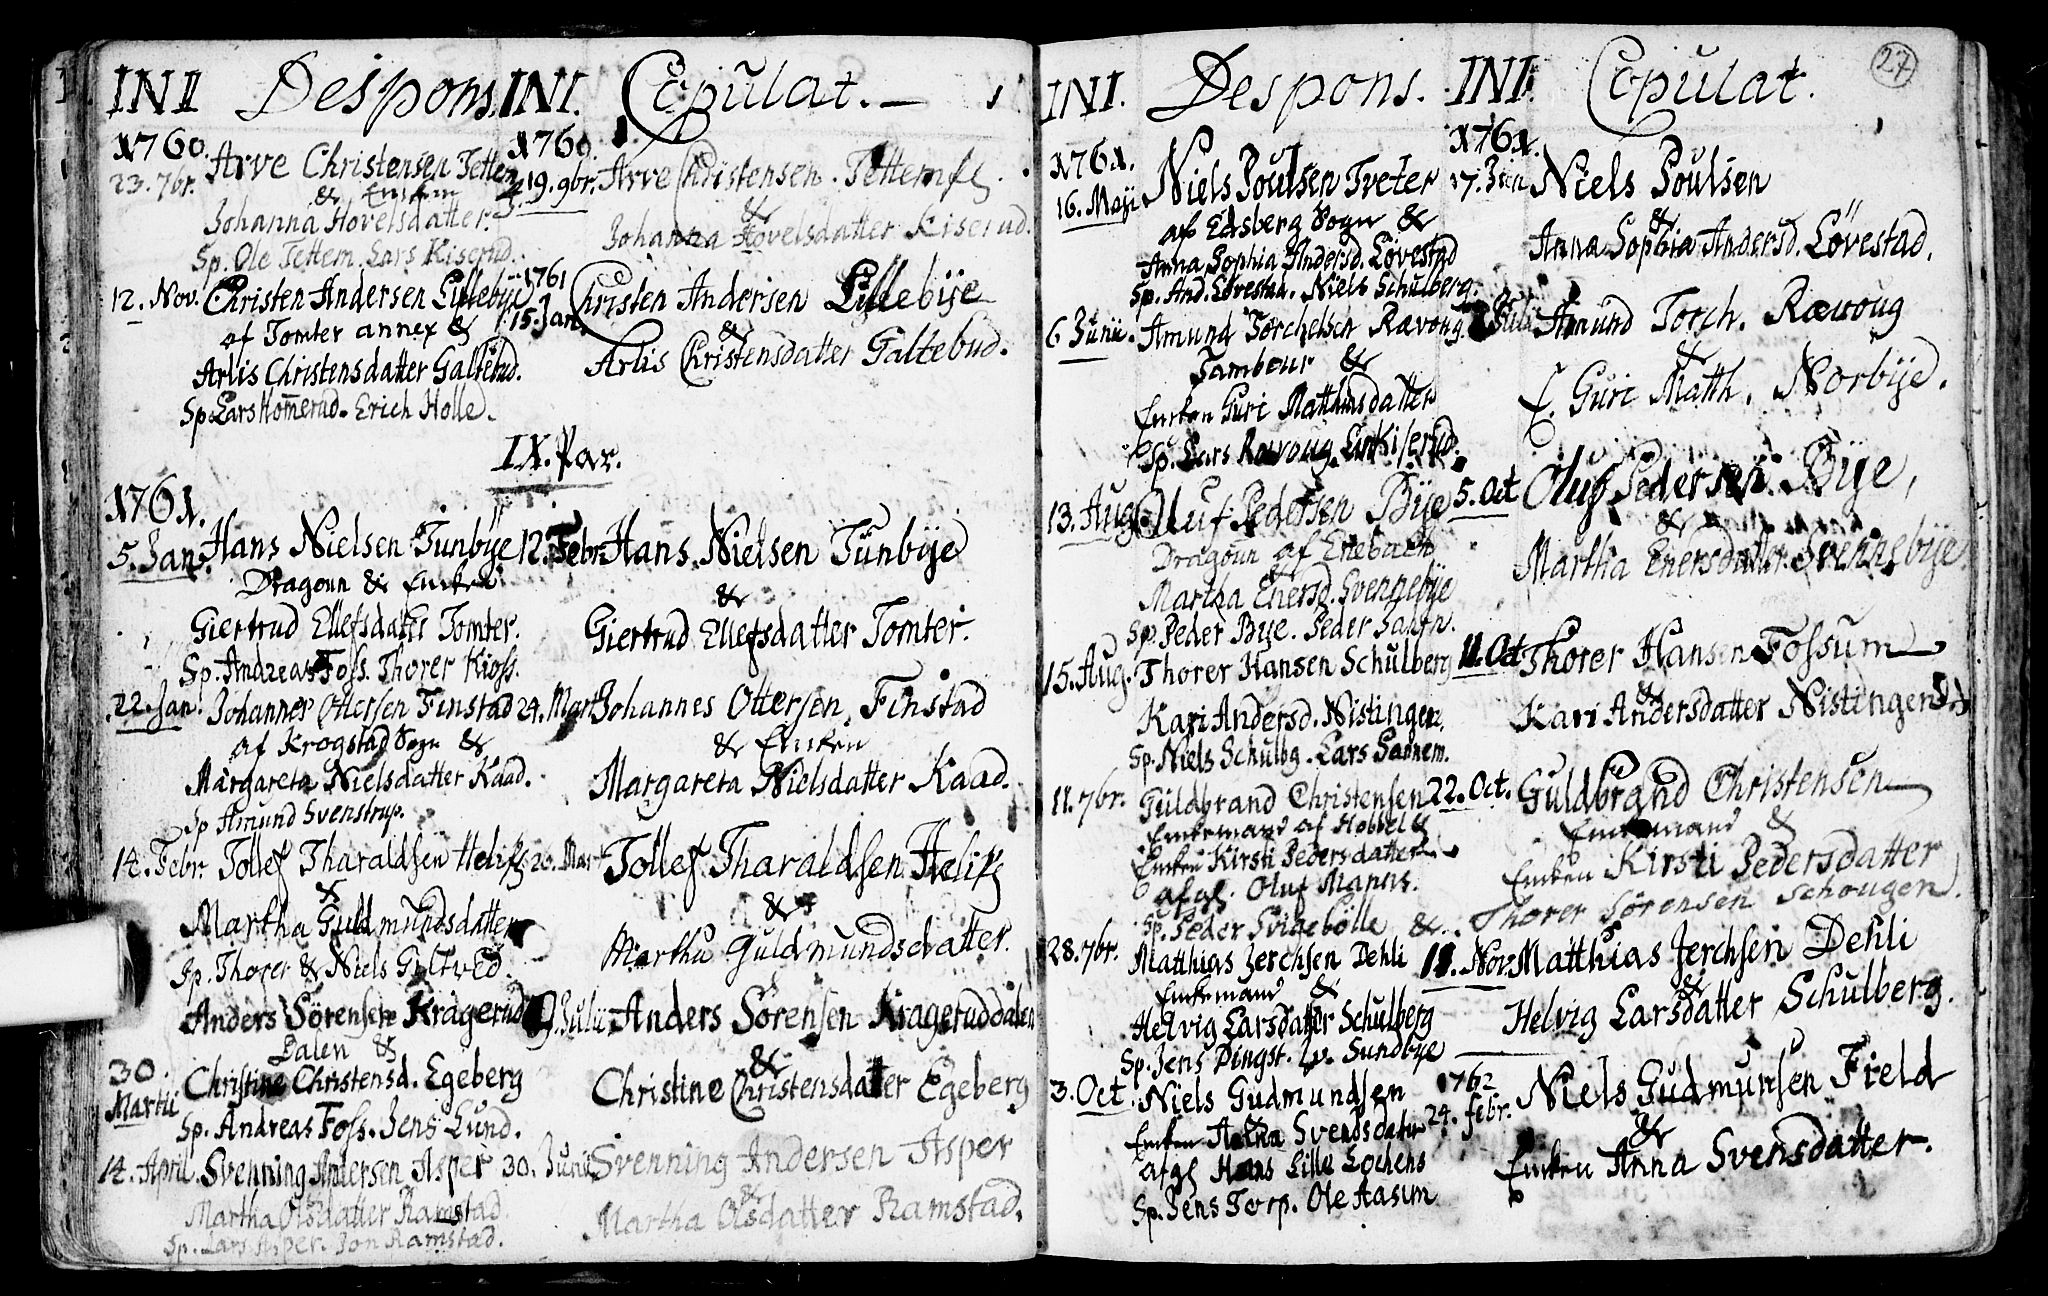 INI Despons. INI. Copulat. —
1760. 1760.
23. 7br. Arve Christensen Tettem 19. 9br. Arve Christensen Tettem
& Enken &
Johanna Hovelsdatter. Johanna Hovelsdatter Kiserud.
Sp. Ole Tettem. Lars Kiserud.
12. Nov. Christen Andersen Lillebÿe 1761 Christen Andersen Lillebÿe
af Tomter annex & 15. Jan. &
Arlis Christensdatter Galtebud. Arlis Christensdatter Galtebud.
Sp. Lars Homerud. Erich Holle.
IX. Par.
1761.
5. Jan. Hans Nielsen Tunbÿe 12. Febr. Hans Nielsen Tunbÿe
Dragoun & Enken &
Giertrud Ellefsdatter Tomter. Giertrud Ellefsdatter Tomter.
Sp. Andreas Foss. Thorer Kioss.
22. Jan. Johannes Ottersen Finstad 24. Mart. Johannes Ottersen Finstad
af Krogstad Sogn & & Enken
Margareta Nielsdatter Kaad. Margareta Nielsdatter Kaad.
Sp Amund Svenstrup.
14. Febr. Tollef Tharaldsen 26. Mart Tollef Tharaldsen
& &
Martha Guldmundsdatter Martha Guldmundsdatter.
Sp. Thorer & Niels
Anders Sörensen Kragerud Julii Anders Sörensen Krageruddalen
Dalen & &
30. Martii Christine Christensd. Egeberg Christine Christensdatter Egeberg
Sp. Andreas Foss. Jens Lund.
14. April. Svenning Andersen Asper 30. Junii Svenning Andersen Asper
&
Martha Olsdatter Ramstad. Martha Olsdatter Ramstad.
Sp. Lars Asper. Jon Ramstad.
27
INI. Despons. INI. Copulat.
1761. 1761.
16. Maji Niels Poulsen Tveter 17. Jun Niels Poulsen
af Edsberg Sogn & &
Anna Sophia Andersd. Lövestad Anna Sophia Andersd. Lövestad.
Sp. And. Lövestad. Niels Schulberg.
6 Junii. Amund Torchelsen Rævoug. Juli Amund Torch. Rævoug
Tambour & &
Enken Guri Matthisdatter E. Guri Matth. Norbÿe.
Sp. Lars Rævoug. Lars Kiserud.
13. Aug. Oluf Pedersen Bÿe 5. Oct Oluf Pedersen Bÿe,
Dragoun af Enebach &
Martha Enersd. Svennebÿe Martha Enersdatter Svennebÿe.
Sp. Peder Bÿe. Peder
15. Aug. Thorer Hansen Schulberg 11. Oct Thorer Hansen Fossum
&
Kari Andersd. Nistingen. Kari Andersdatter Nistingen
Sp. Niels Schulbg. Lars Sannem.
11. 7br. Guldbrand Christensen 22. Oct. Guldbrand Christensen
Enkemand af Hobbel & Enkemand &
Enken Kirsti Pedersdatter Enken Kirsti Pedersdatter
afgl. Oluf
Sp. Peder Svigebölle & Thorer Sörensen Schougen.
28. 7br. Matthias Jerchsen Dehli 11. Nov. Matthias Jerchsen Dehli
Enkemand & &
Helvig Larsdatter Schulberg Helvig Larsdatter Schulberg.
Sp. Jens Dingst. Sundbÿe
3. Oct. Niels Gudmundsen 1762 Niels Gudmunsen Field
& 24. febr. &
Enken Anna Svendsdatter Enken Anna Svensdatter.
afgl Hans Lille Lochens
Sp. Jens Torp. Ole Aasum